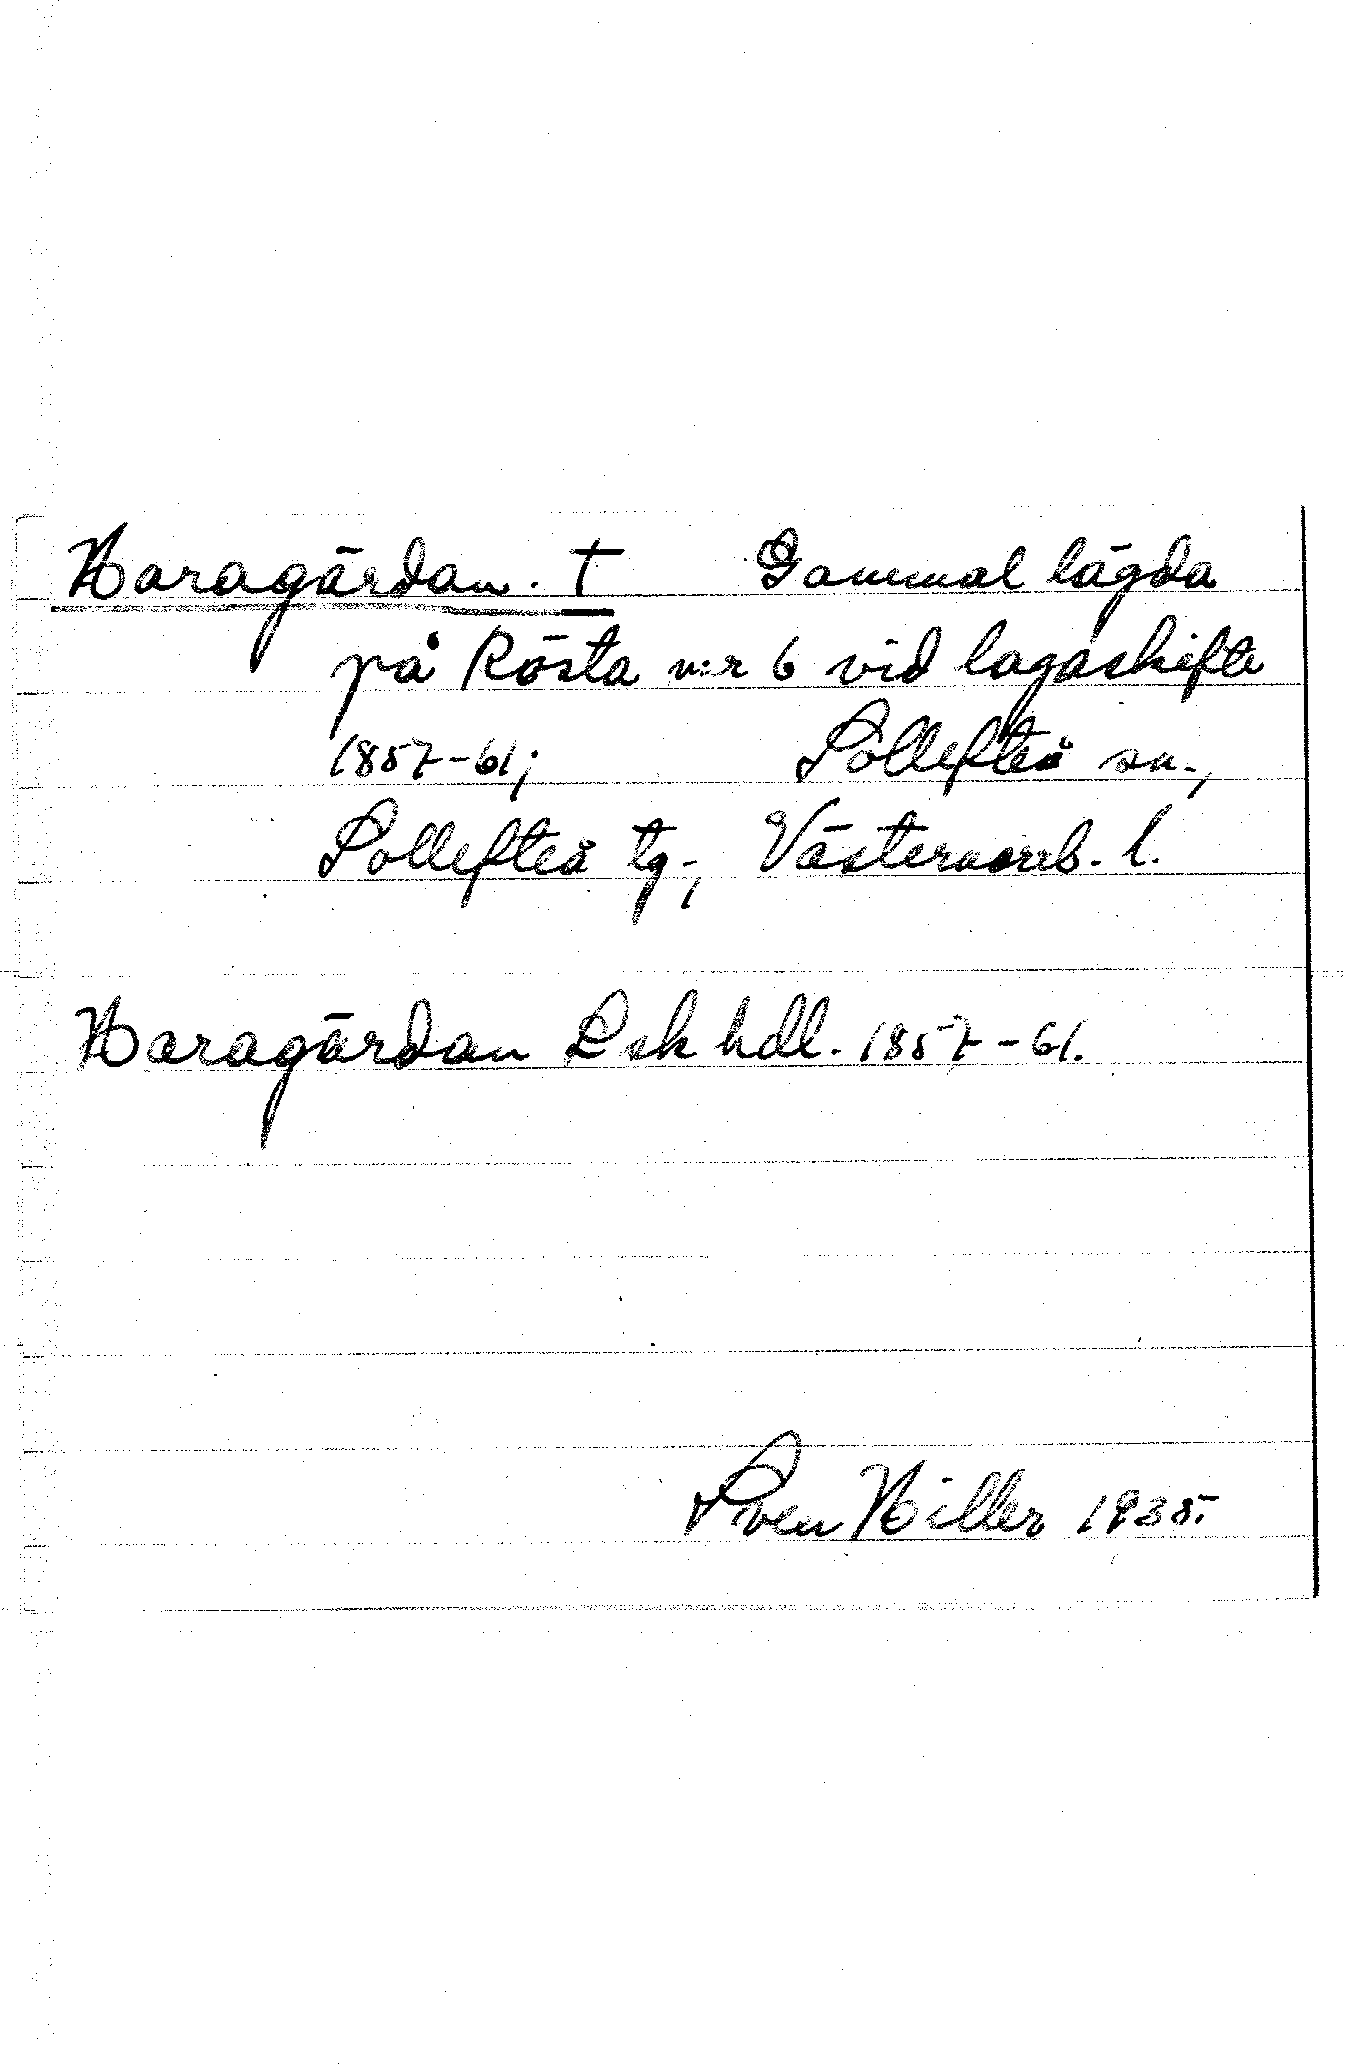 Haragärdan. †   Gammal lägda
på Rösta n:r 6 vid lagaskifte
1857-61;   Sollefteå sn.,
Sollefteå tg., Västernorrl. l.
Haragärdan Lsk hdl. 1857-61.
Sven Hiller 1935.